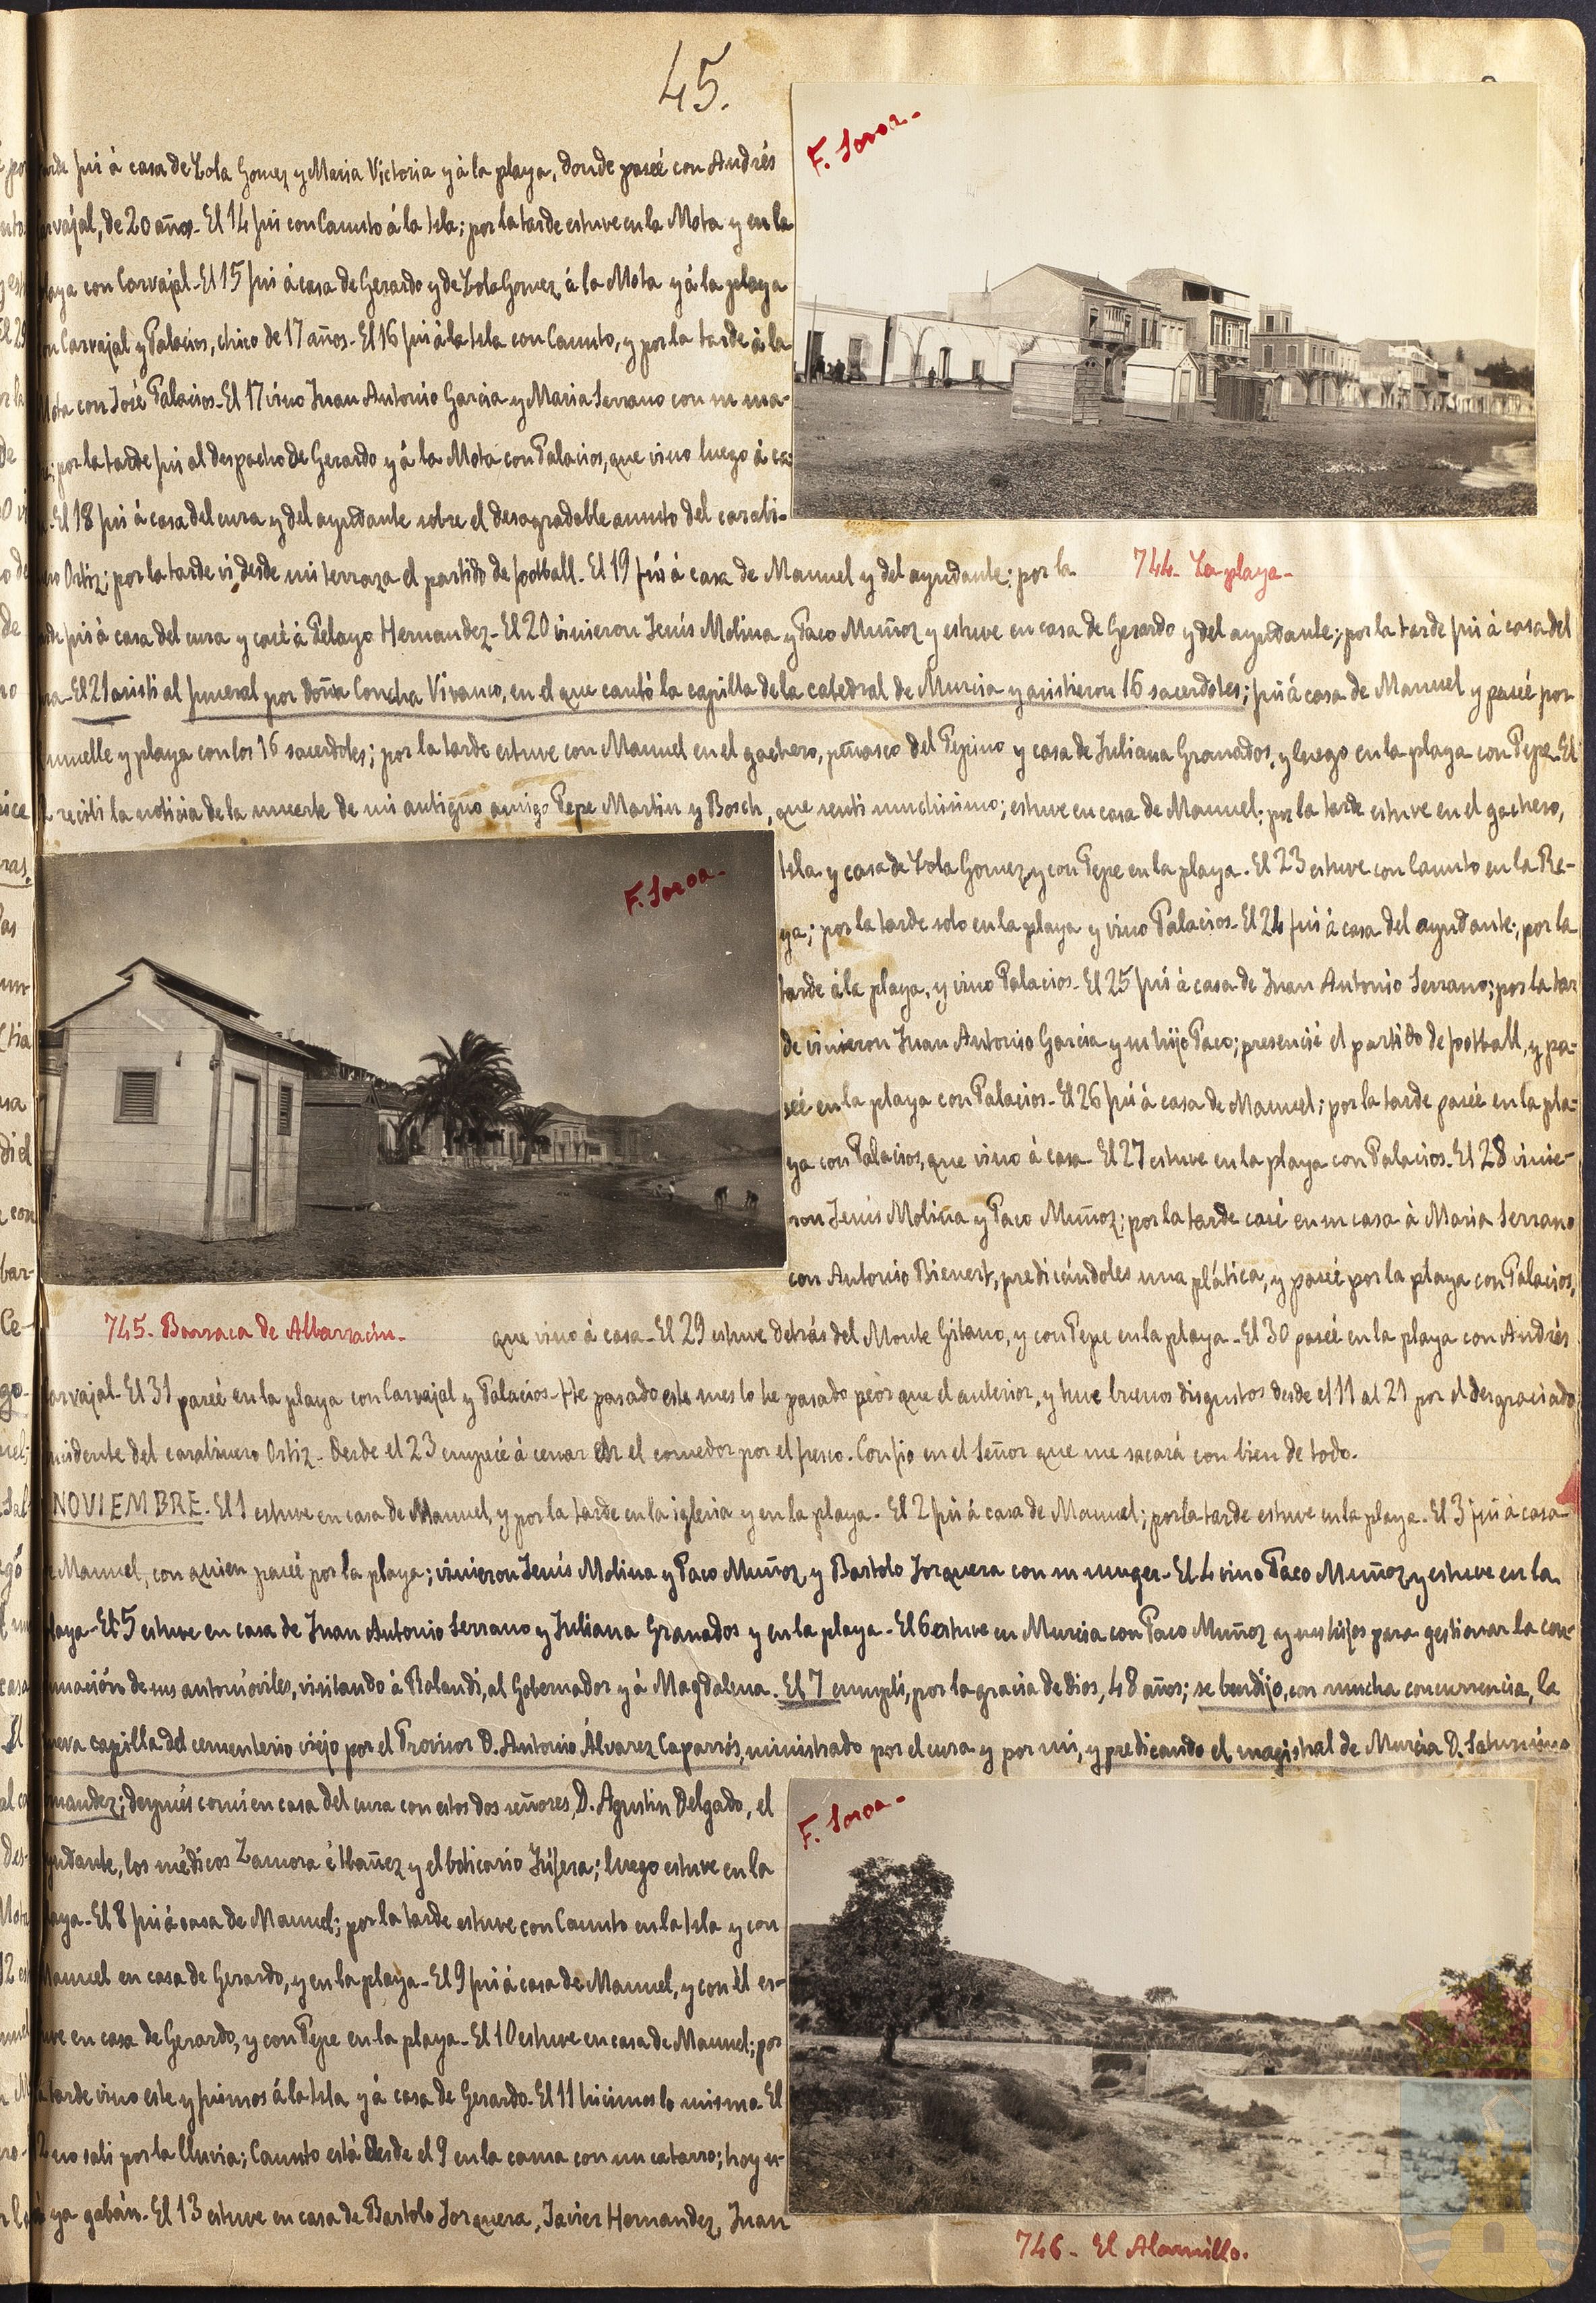 45.
F. Soroa.-
fui á casa de Lola Gomez y Maria Victoria y á la playa, donde paseé con Andrés
Carvajal, de 20 años.- El 14 fui con Caunto á la Isla; por la tarde estuve en la Mota y en la
playa con Carvajal.- El 15 fui á casa de Gerardo y de Lola Gomez, á la Mota y á la playa
con Carvajal y Palacios, chico de 17 años.- El 16 fui á la Isla con Caunto, y por la tarde á la
Mota con José Palacios.- El 17 vino Juan Antonio Garcia y Maria Serrano con su ma-
; por la tarde fui al despacho de Gerardo y á la Mota con Palacios, que vino luego á ca-
. El 18 fui á casa del cura y del ayudante sobre el desagradable asunto del carabi-
nero Ortiz; por la tarde vi desde mi terraza el partido de football. El 19 fui á casa de Manuel y del ayudante; por la
744.- La playa.-
tarde fui á casa del cura y casé á Pelayo Hernandez.- El 20 vinieron Jesús Molina y Paco Muñoz y estuve en casa de Gerardo y del ayudante; por la tarde fui á casa del
cura.- El 21 asistí al funeral por doña Concha Vivanco, en el que cantó la capilla de la catedral de Murcia y asistieron 16 sacerdotes; fui á casa de Manuel y paseé por
muelle y playa con los 16 sacerdotes; por la tarde estuve con Manuel en el gachero, peñasco del Pepino y casa de Juliana Granados, y luego en la playa con Pepe. El
recibí la noticia de la muerte de mi antiguo amigo Pepe Martin y Bosch, que sentí muchísimo; estuve en casa de Manuel; por la tarde estuve en el gachero,
Isla y casa de Lola Gomez, y con Pepe en la playa. El 23 estuve con Caunto en la Re-
ya; por la tarde solo en la playa y vino Palacios.- El 24 fui á casa del ayudante; por la
tarde á la playa, y vino Palacios.- El 25 fui á casa de Juan Antonio Serrano; por la tar-
de vinieron Juan Antonio Garcia y su hijo Paco; presencié el partido de football, y pa-
seé en la playa con Palacios.- El 26 fui á casa de Manuel; por la tarde paseé en la pla-
ya con Palacios, que vino á casa.- El 27 estuve en la playa con Palacios.- El 28 vinie-
ron Jesús Molina y Paco Muñoz; por la tarde casé en su casa á Maria Serrano
con Antonio Bienert, predicándoles una plática, y paseé por la playa con Palacios,
F. Soroa.-
745.- Barraca de Albarracín.-
que vino á casa.- El 29 estuve detrás del Monte Gitano, y con Pepe en la playa.- El 30 paseé en la playa con Andrés
Carvajal.- El 31 paseé en la playa con Carvajal y Palacios.- He pasado este mes lo he pasado peor que el anterior, y tuve buenos disgustos desde el 11 al 21 por el desgraciado
incidente del carabinero Ortiz.- Desde el 23 empecé á cenar en el comedor por el fresco. Confio en el Señor que me sacará con bien de todo.
NOVIEMBRE. El 1 estuve en casa de Manuel, y por la tarde en la iglesia y en la playa.- El 2 fui á casa de Manuel; por la tarde estuve en la playa.- El 3 fui á casa
de Manuel, con quien paseé por la playa; vinieron Jesús Molina y Paco Muñoz, y Bartolo Jorquera con su muger.- El 4 vino Paco Muñoz y estuve en la
playa.- El 5 estuve en casa de Juan Antonio Serrano y Juliana Granados y en la playa.- El 6 estuve en Murcia con Paco Muñoz y sus hijos para gestionar la con-
de sus automóviles, visitando á Rolandi, al Gobernador y á Magdalena. El 7 cumplí, por la gracia de Dios, 48 años; se bendijo, con mucha concurrencia, la
nueva capilla del cementerio viejo por el Provisor D. Antonio Álvarez Caparrós, ministrado por el cura y por mi, y predicando el magistral de Murcia D. Saturnino
Fernandez; después comí en casa del cura con estos dos señores, D. Agustin Delgado, el
ayudante, los médicos Zamora é Ibañez y el boticario Jijera; luego estuve en la
playa.- El 8 fui á casa de Manuel; por la tarde estuve con Caunto en la Isla y con
Manuel en casa de Gerardo, y en la playa.- El 9 fui á casa de Manuel, y con él es-
tuve en casa de Gerardo, y con Pepe en la playa.- El 10 estuve en casa de Manuel; por
la tarde vino este y fuimos á la Isla y á casa de Gerardo.- El 11 hicimos lo mismo.- El
12 no salí por la lluvia; Caunto está desde el 9 en la cama con un catarro; hoy es-
ya gabán.- El 13 estuve en casa de Bartolo Jorquera, Javier Hernandez, Juan
F. Soroa.-
746.- El Alamillo.